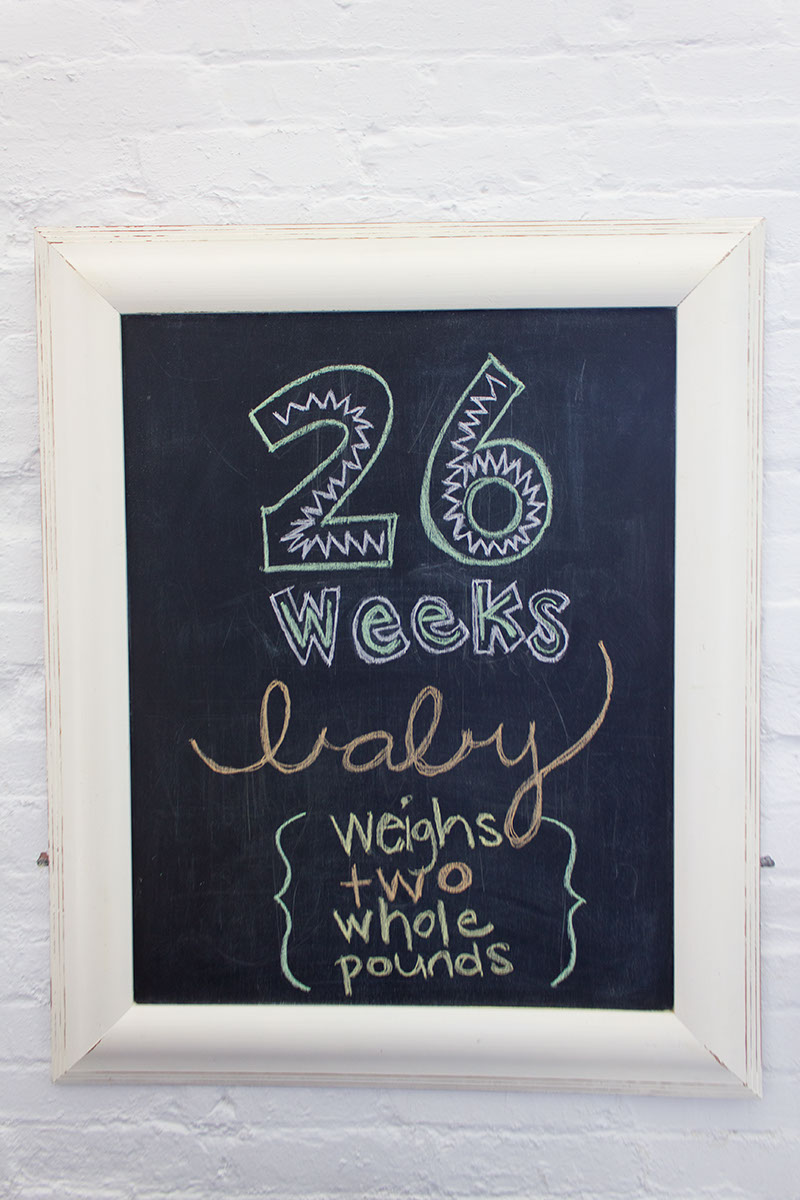 26
Weeks
baby
weighs
two
whole
pounds